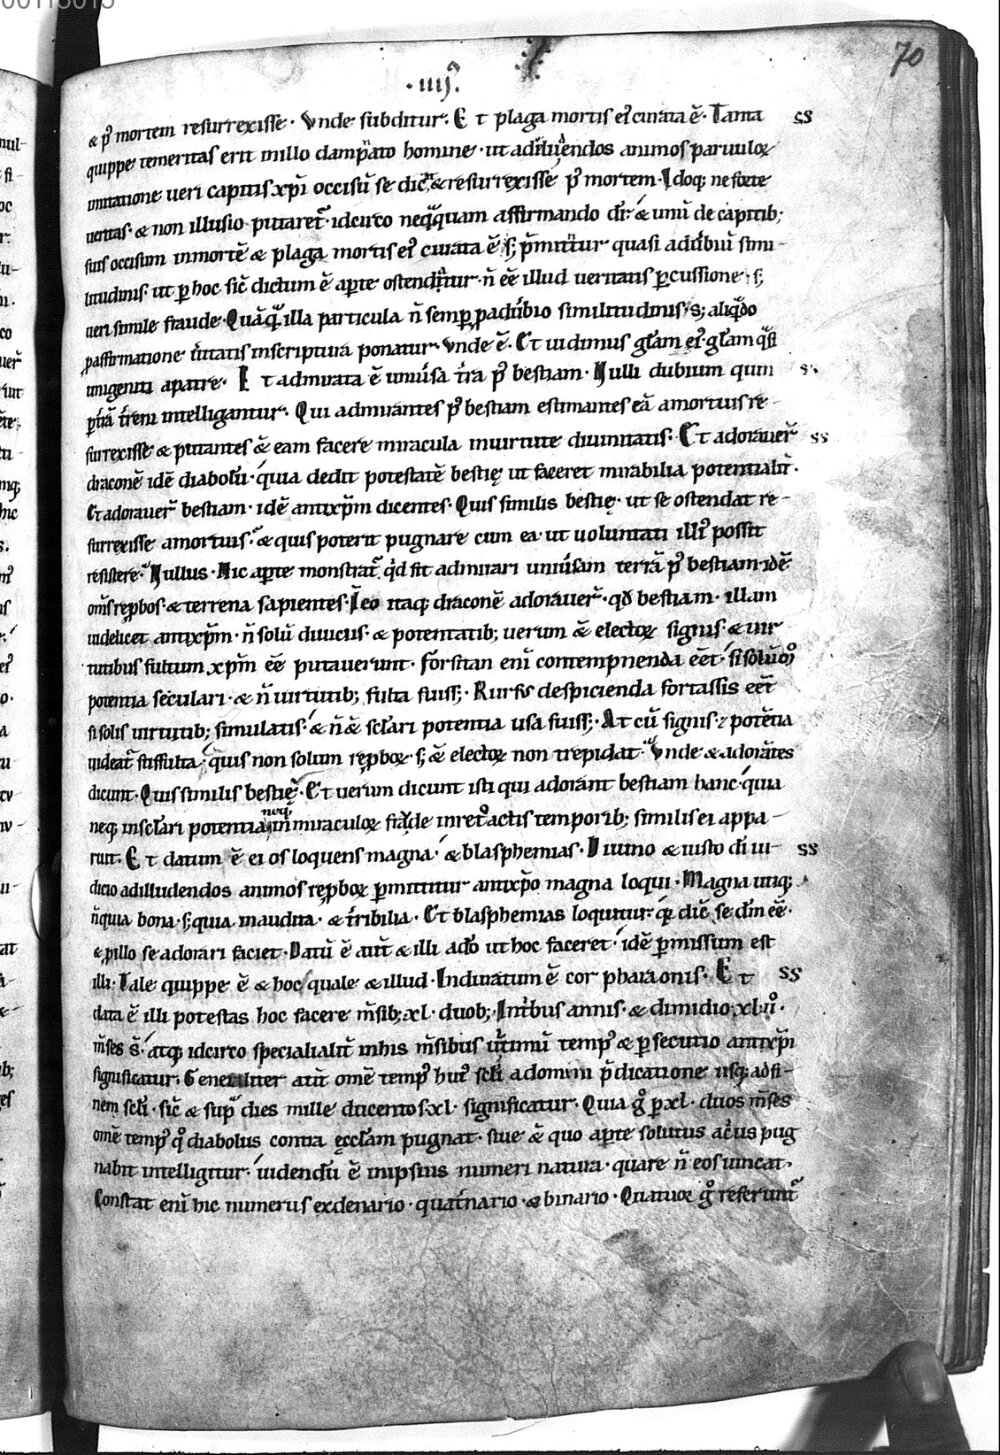 00113013
70
·iiij.
& p᷒ mortem resurrexisse · Vnde subditur · Et plaga mortis ei᷒ curata ē · Tanta ss
quippe temeritas erit in illo dampnato homine · ut ad illudendos animos paruuloꝝ
imitatione ueri capitis xp̄i occisū se dicat & resurrexisse p᷒ mortem · Idoq; ne forte
ueritas · & non illusio putaret̄ · idcirco neq̄quam affirmando dr̄ · & unū de capitib;
suis occisum in mortē & plaga mortis ei᷒ curata ē · s; p̄mittitur quasi aduerbiū simi-
litudinis · ut p hoc sic̄ dictum ē apte ostenditur · n̄ eē illud ueritatis p̱cussione · s;
ueri simile fraude · Quāq̄ illa particula n̄ semp̱ p aduerbio similitudinis · s; aliq̄do
p affirmatione ueritatis in scriptura ponatur · Vnde ē · Et uidimus gl̄am ei᷒ gl̄am q̄si
unigeniti a patre · Et admirata ē uniūsa t̄ra p᷒ bestiam · Nulli dubium quin s·
p t̄rā t̄rem intelligantur · Qui admirantes p᷒ bestiam estimantes eā a mortuis re-
surrexisse & putantes & eam facere miracula in uirtute diuinitatis · Et adorauer̄ ss
draconē idē diabolū · quia dedit potestatē bestię ut faceret mirabilia potentialit̄ ·
Et adorauer̄ bestiam · idē antixp̄m dicentes · Quis similis bestię · ut se ostendat re-
surrexisse a mortuis · & quis poterit pugnare cum ea · ut uoluntati illi᷒ possit
resistere · Nullus · Hic apte monstrat̄ q̇d sit admirari uniūsam terrā p᷒ bestiam · idē
om̄s rep̱bos · & terrena sapientes · Ideo itaq; draconē adorauer̄ · qđ bestiam · illam
uidelicet antixp̄m · n̄ solū diuitiis · & potentatib; uerum & electoꝝ signis · & uir
tutibus fultum xp̄m eē putauerunt · Forsitan enī contempnenda eēt · si solū modo
potentia seculari · & n̄ uirtutib; fulta fuiss; · Rursus despicienda fortassis eēt
si solis uirtutib; simulatis · & n̄ & sc̄lari potentia usa fuiss; · At cū signis · & potētia
uideat̄ suffulta · quis non solum rep̱boꝝ · s; & electoꝝ non trepidat · Vnde & adorātes
dicunt · Quis similis bestię · Et uerum dicunt isti qui adorant bestiam hanc · quia
neq; in sc̄lari potentia neq; in miraculoꝝ fraude in retro actis temporib; similis ei appa-
ruit · Et datum ē ei os loquens magna · & blasphemias · Diuino & iusto dī iu- ss
dicio ad illudendos animos rep̱boꝝ p̱mittitur antixp̄o magna loqui · Magna utiq;
n̄ quia bona · s; quia inaudita · & t̄ribilia · Et blasphemias loquitur · q̄ dic̄ se dm̄ eē ·
& p illo se adorari faciet · Datū ē aut̄ & illi a dō ut hoc faceret · idē p̱missum est
illi · Tale quippe ē & hoc quale & illud · Induratum ē cor pharaonis · Et ss
data ē illi potestas hoc facere m̄sib; xl · duob; · In trib; annis · & dimidio · xl · ii᷒ ·
m̄ses s̄ · atq; idcirco specialialit̄ in his m̄sibus ultimū temp᷒ & p̱secutio antixp̄i
significatur · Generaliter aut̄ omē temp᷒ hui᷒ sc̄li a domini p̄dicatione usq; ad fi-
nem sc̄li · sic̄ & sup̄ dies mille ducentos xl · significatur · Quia g̊ p xl · duos m̄ses
omē temp᷒ q̊ diabolus contra ęccl̄am pugnat · siue & quo apte solutus aduersus pug
nabit intelligitur · uidendū ē in ipsius numeri natura · quare n̄ eos uincat ·
Constat enī hic numerus ex denario · quat̄nario · & binario · Quatuor g̊ referunt᷒